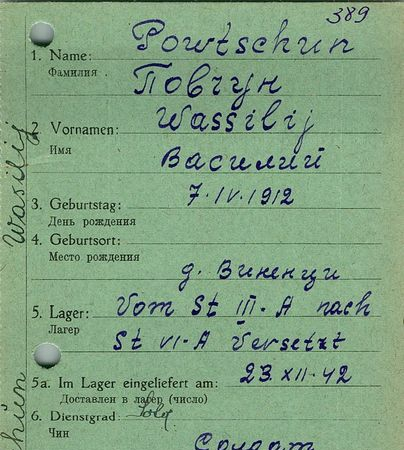 389
1. Name: Powtschun
Фамилия
Повчун
2. Vornamen: Wassilij
Имя
Василий
3. Geburtstag: 7·IV·1912
День рождения
4. Geburtsort:
Место рождения
д. Виненци
5. Lager: Vom St III-A nach
Лагер
St VI-A Versetzt
5a. Im Lager eingeliefert am: 23.XII-42
Доставлен в лагер (число)
6. Dienstgrad: Sold
Чин
Солдат
Wassilij